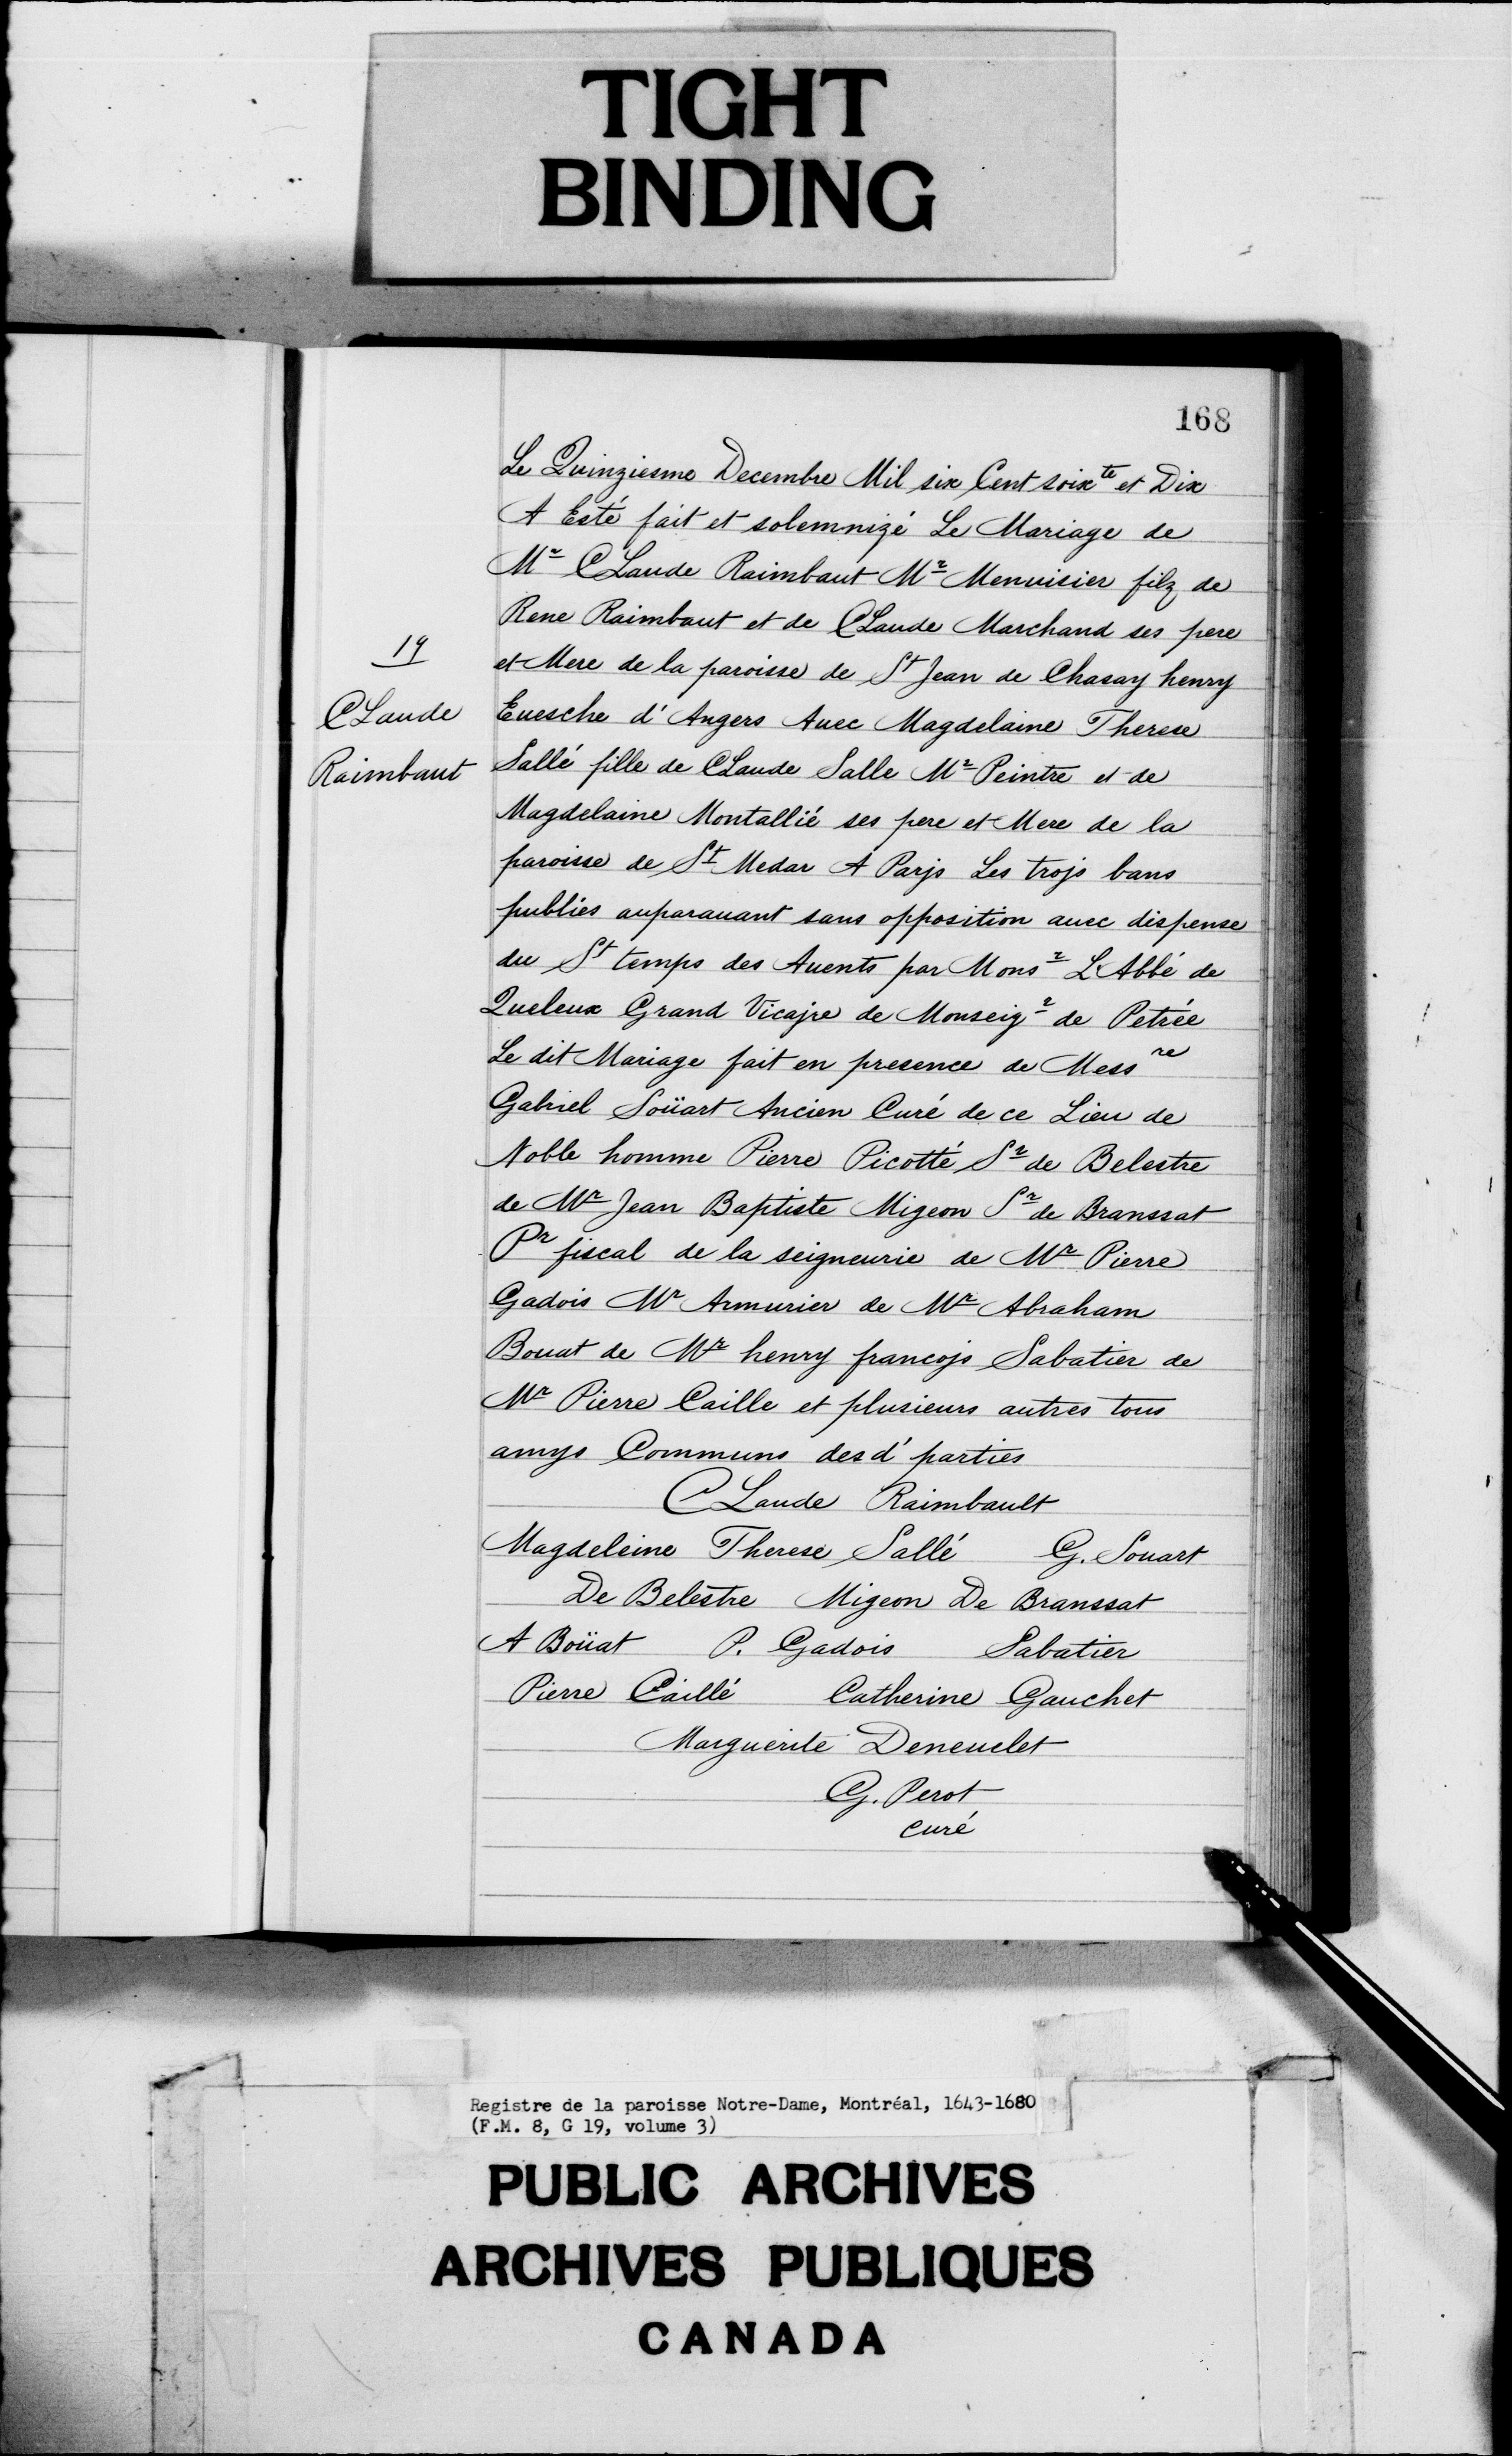 TIGHT
BINDING
168
Le Quinziesme Decembre Mil six Cent soixte et Dix
A Esté fait et solemnizé Le Mariage de
Mr CLaude Raimbaut Mr Menuisier filz de
Rene Raimbaut et de CLaude Marchand ses pere
et Mere de la paroisse de St Jean de Chasay henry
Euesche d'Angers Auec Magdelaine Therese
Sallé fille de CLaude Salle Mr Peintre et de
Magdelaine Montallié ses pere et Mere de la
paroisse de St Medar A Parjs Les trojs bans
publies auparauant sans opposition auec dispense
du St temps des Auents par Monsr L'Abbé de
Queleux Grand Vicajre de Monseigr de Petrée
Le dit Mariage fait en presence de Messre
Gabriel Soüart Ancien Curé de ce Lieu de
Noble homme Pierre Picotté Sr de Belestre
de Mr Jean Baptiste Migeon Sr de Branssat
Pr fiscal de la seigneurie de Mr Pierre
Gadois Mr Armurier de Mr Abraham
Bouat de Mr henry francojs Sabatier de
Mr Pierre Caille et plusieurs autres tous
amys Communs desd' parties
CLaude Raimbault
Magdeleine Therese Sallé G. Souart
De Belestre Migeon De Branssat
A Boüat P. Gadois Sabatier
Pierre Caillé Catherine Gauchet
Marguerite Deneuelet
G. Perot
curé
19
CLaude
Raimbaut
Registre de la paroisse Notre-Dame, Montréal, 1643-1680
(F.M. 8, G 19, volume 3)
PUBLIC ARCHIVES
ARCHIVES PUBLIQUES
CANADA